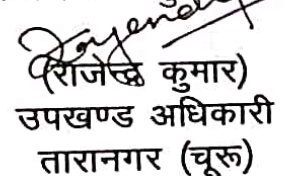 (राजेन्द्र कुमार)
उपखण्ड अधिकारी
तारानगर (चूरू)